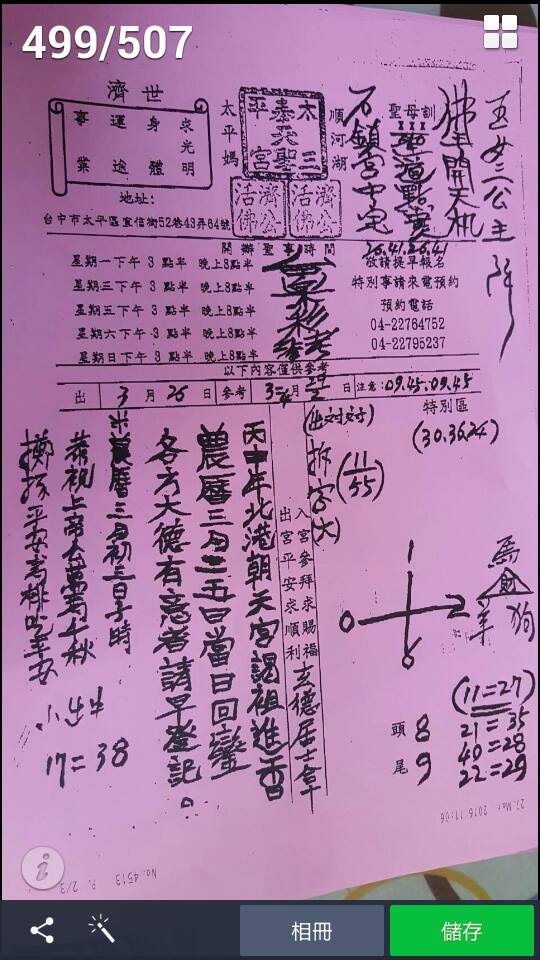 499/507
濟世
事運身求
光
業途體明
地址:
台中市太平區宜信街52巷43弄64號
太平媽
太三
泰天聖
平宮
濟公活佛
濟公活佛
順河湖
聖母訓
佛主開天机
玉女二公主降
石鎮宮中定
26.41.26.41
開辦聖事時間
敬請提早報名
星期一下午 3 點半 晚上8點半
星期三下午 3 點半 晚上8點半
星期五下午 3 點半 晚上8點半
星期六下午 3 點半 晚上8點半
星期日下午 3 點半 晚上8點半
特別事請來電預約
預約電話
04-22764752
04-22795237
以下內容僅供參考
出 3 月 26 日 參考
月
日 注意: 09.45.09.45
特別區
(30.36.24)
(出对对)
拆字(大)
(11/55)
入宮參拜求賜福
出宮平安求順利
玄德居士拿
丙申年北港朝天宮謁祖進香
農曆三月二五日當日回鑾
各方大德有意者請早登記。
農曆三月初三日子時
恭祝上帝公萬壽千秋
1
0 2
8
馬
羊 狗
(11=27)
21=35
40=28
22=29
頭 8
尾 9
17=38
27.Mar. 2016 11:06
No. 4513 P. 2/3
相冊
儲存